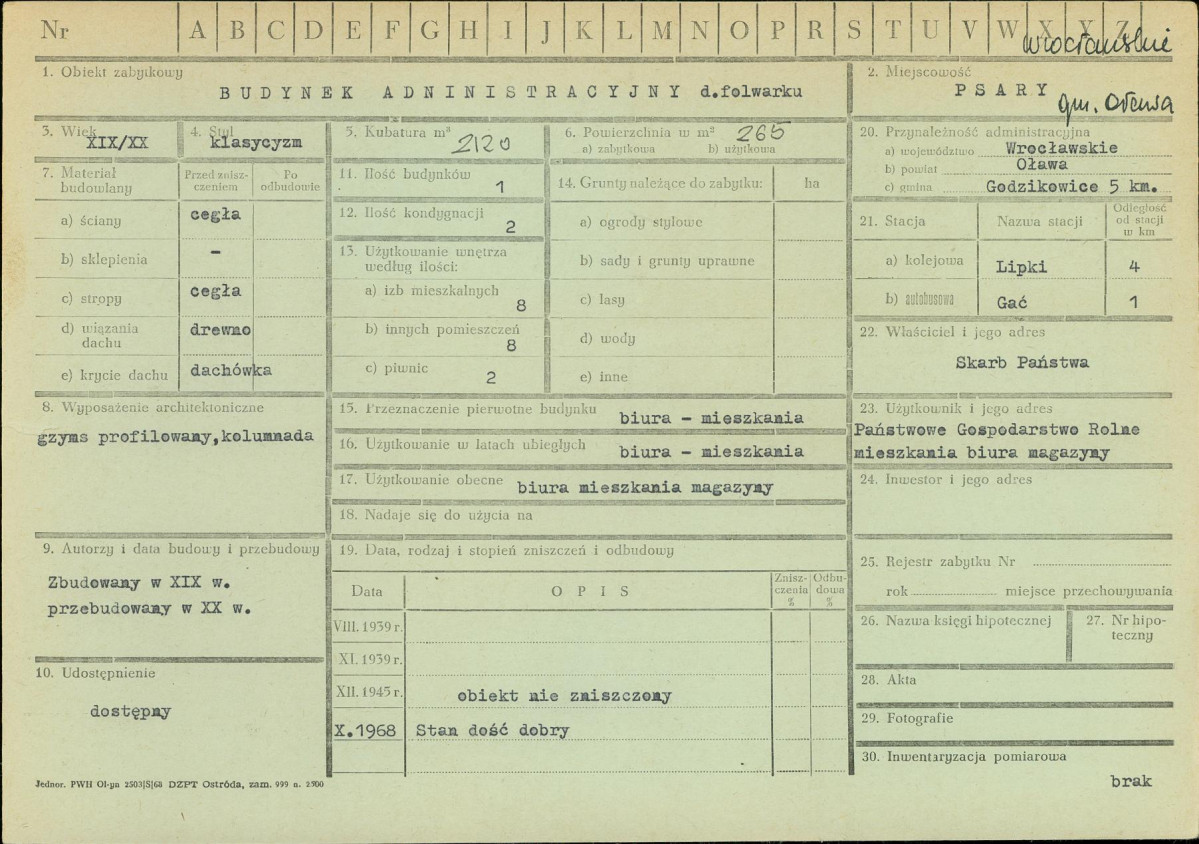 Nr A B C D E F G H I J K L M N O P R S T U V W X Y Z
wrocławskie
1. Obiekt zabytkowy
BUDYNEK ADNINISTRACYJNY d.folwarku
2. Miejscowość
PSARY
gm. Oława
3. Wiek
XIX/XX
4. Styl
klasycyzm
5. Kubatura m³
2120
6. Powierzchnia w m²
265
a) zabytkowa b) użytkowa
7. Materiał budowlany
Przed zniszczeniem
Po odbudowie
a) ściany cegła
b) sklepienia –
c) stropy cegła
d) wiązania dachu drewno
e) krycie dachu dachówka
8. Wyposażenie architektoniczne
gzyms profilowany,kolumnada
9. Autorzy i data budowy i przebudowy
Zbudowany w XIX w.
przebudowany w XX w.
10. Udostępnienie
dostępny
11. Ilość budynków
1
12. Ilość kondygnacji
2
13. Użytkowanie wnętrza według ilości:
a) izb mieszkalnych
8
b) innych pomieszczeń
8
c) piwnic
2
14. Grunty należące do zabytku: ha
a) ogrody stylowe
b) sady i grunty uprawne
c) lasy
d) wody
e) inne
15. Przeznaczenie pierwotne budynku biura – mieszkania
16. Użytkowanie w latach ubiegłych biura – mieszkania
17. Użytkowanie obecne biura mieszkania magazyny
18. Nadaje się do użycia na
19. Data, rodzaj i stopień zniszczeń i odbudowy
Data OPIS Zniszczenia % Odbudowa %
VIII. 1939 r.
XI. 1939 r.
XII. 1945 r. obiekt nie zniszczony
X.1968 Stan dość dobry
20. Przynależność administracyjna
a) województwo Wrocławskie
b) powiat Oława
c) gmina Godzikowice 5 km.
21. Stacja Nazwa stacji Odległość od stacji w km
a) kolejowa Lipki 4
b) autobusowa Gać 1
22. Właściciel i jego adres
Skarb Państwa
23. Użytkownik i jego adres
Państwowe Gospodarstwo Rolne
mieszkania biura magazyny
24. Inwestor i jego adres
25. Rejestr zabytku Nr
rok miejsce przechowywania
26. Nazwa księgi hipotecznej
27. Nr hipoteczny
28. Akta
29. Fotografie
30. Inwentaryzacja pomiarowa
brak
Jednor. PWH Ol-yn 2503|S|68 DZPT Ostróda, zam. 999 n. 2500